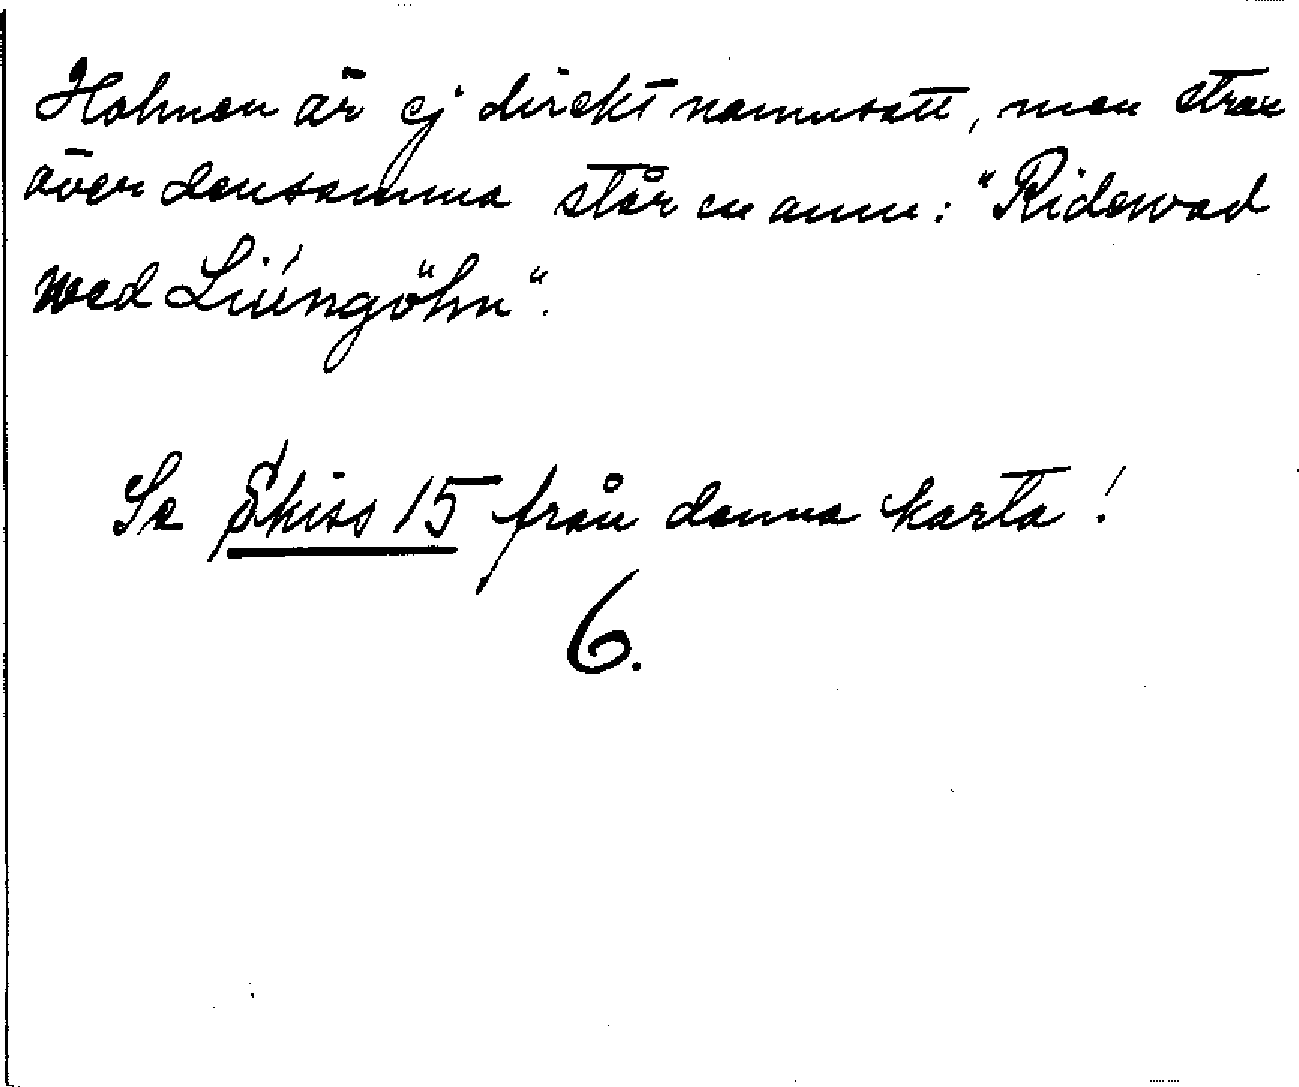 Holmen är ej direkt namnsatt, men strax
över densamma står en anm: "Ridewad
wed Liúngöhn".
Se Skiss 15 från denna karta!
6.